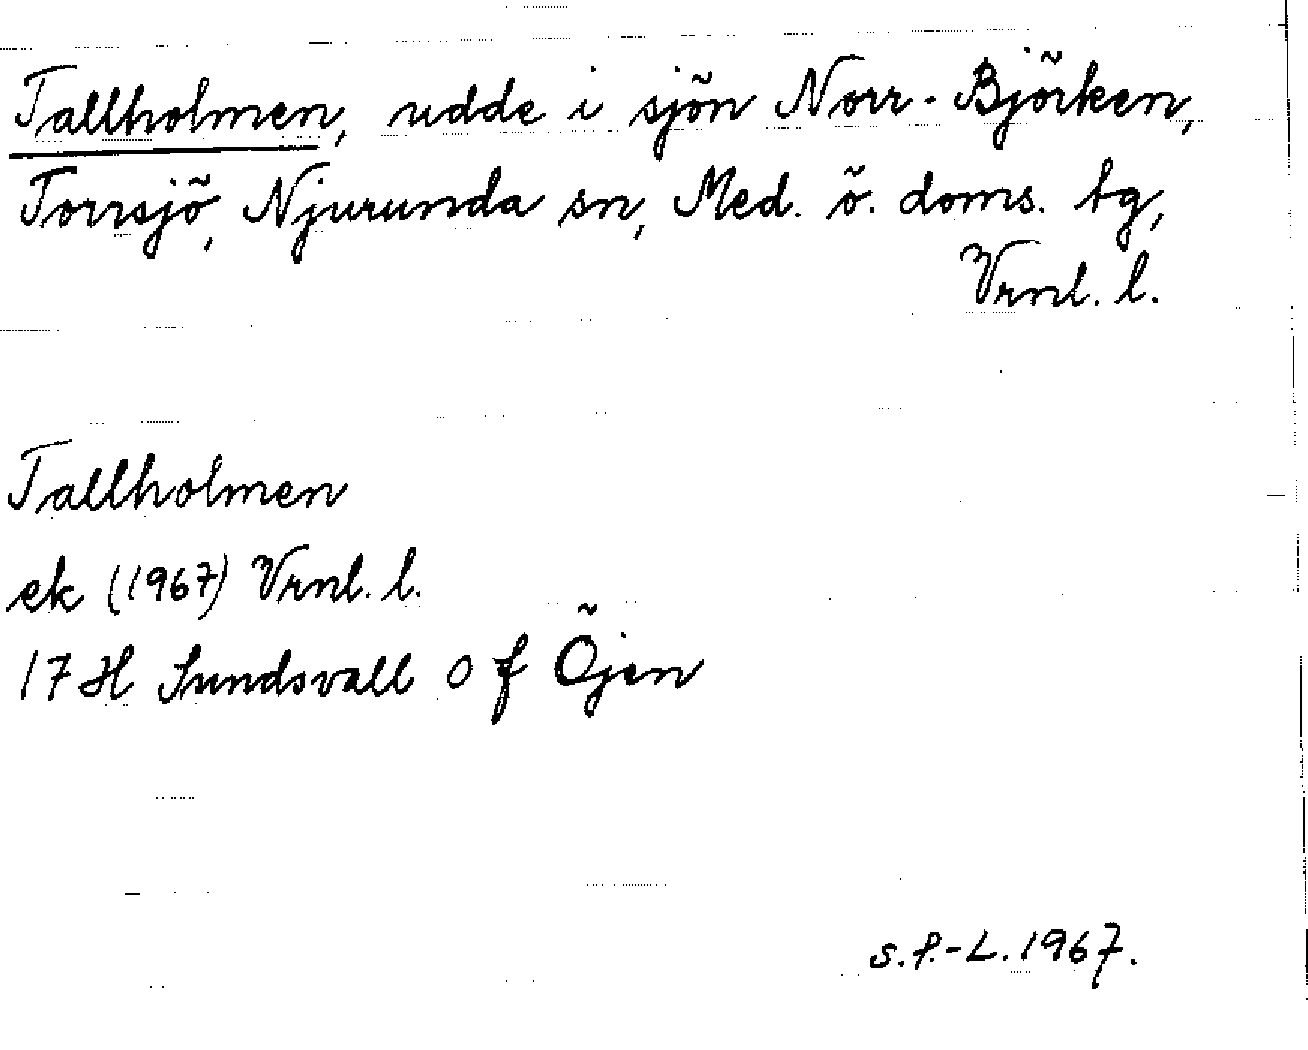 Tallholmen, udde i sjön Norr-Björken,
Torrsjö, Njurunda sn, Med. ö. doms. tg,
Vrnl. l.
Tallholmen
ek (1967) Vrnl. l.
17 H Sundsvall 0 f Öjen
S.P.-L. 1967.